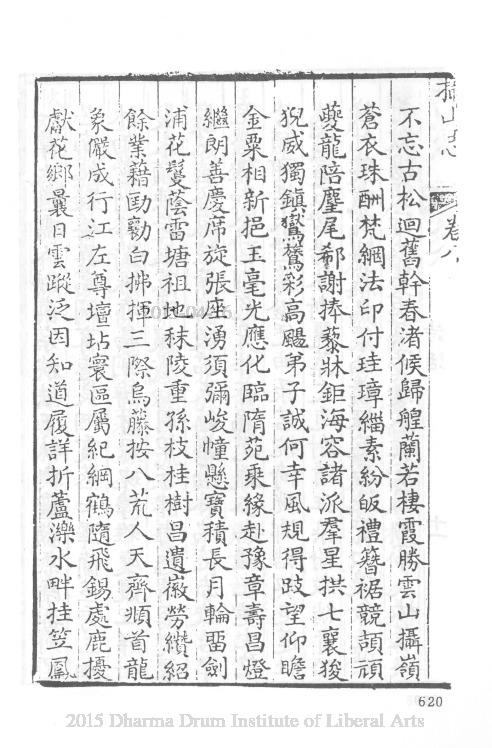 攝山志 卷八
不忘古松迴舊幹春渚候歸艎蘭若棲霞勝雲山攝嶺
蒼衣珠酬梵綱法印付珪璋緇素紛皈禮簪裾競頡頏
夔龍陪麈尾郗謝捧藜牀鉅海容諸派羣星拱七襄狻
猊威獨鎮鸑鷟彩高颺弟子誠何幸風規得跂望仰瞻
金粟相新挹玉毫光應化臨隋苑乘緣赴豫章壽昌燈
繼朗善慶席旋張座湧須彌峻幢懸寶積長月輪畱劍
浦花鬘蔭雷塘祖地秣陵重孫枝桂樹昌遺徽勞纘紹
餘業藉勷白拂揮三際烏藤按八荒人天齊頫首龍
象儼成行江左尊壇坫寰區屬紀綱鶴隨飛錫處鹿擾
獻花鄉曩日雲蹤泛因知道履詳折蘆濼水畔挂笠鳳
620
2015 Dharma Drum Institute of Liberal Arts